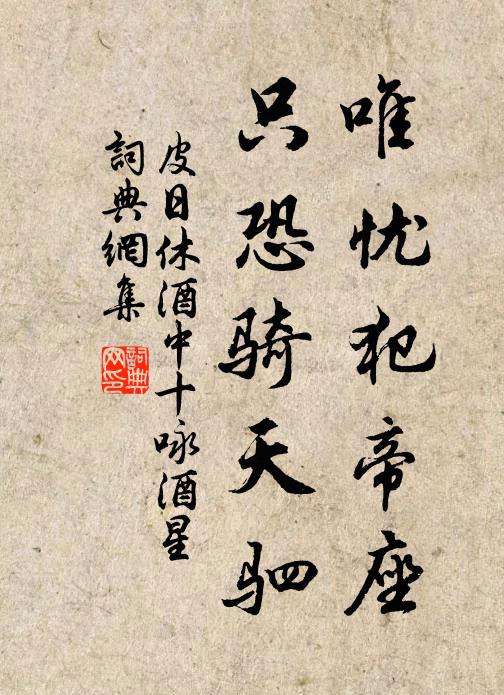 唯忧犯帝座
只恐骑天驷
皮日休酒中十咏酒星
詞典網集
詞典网印